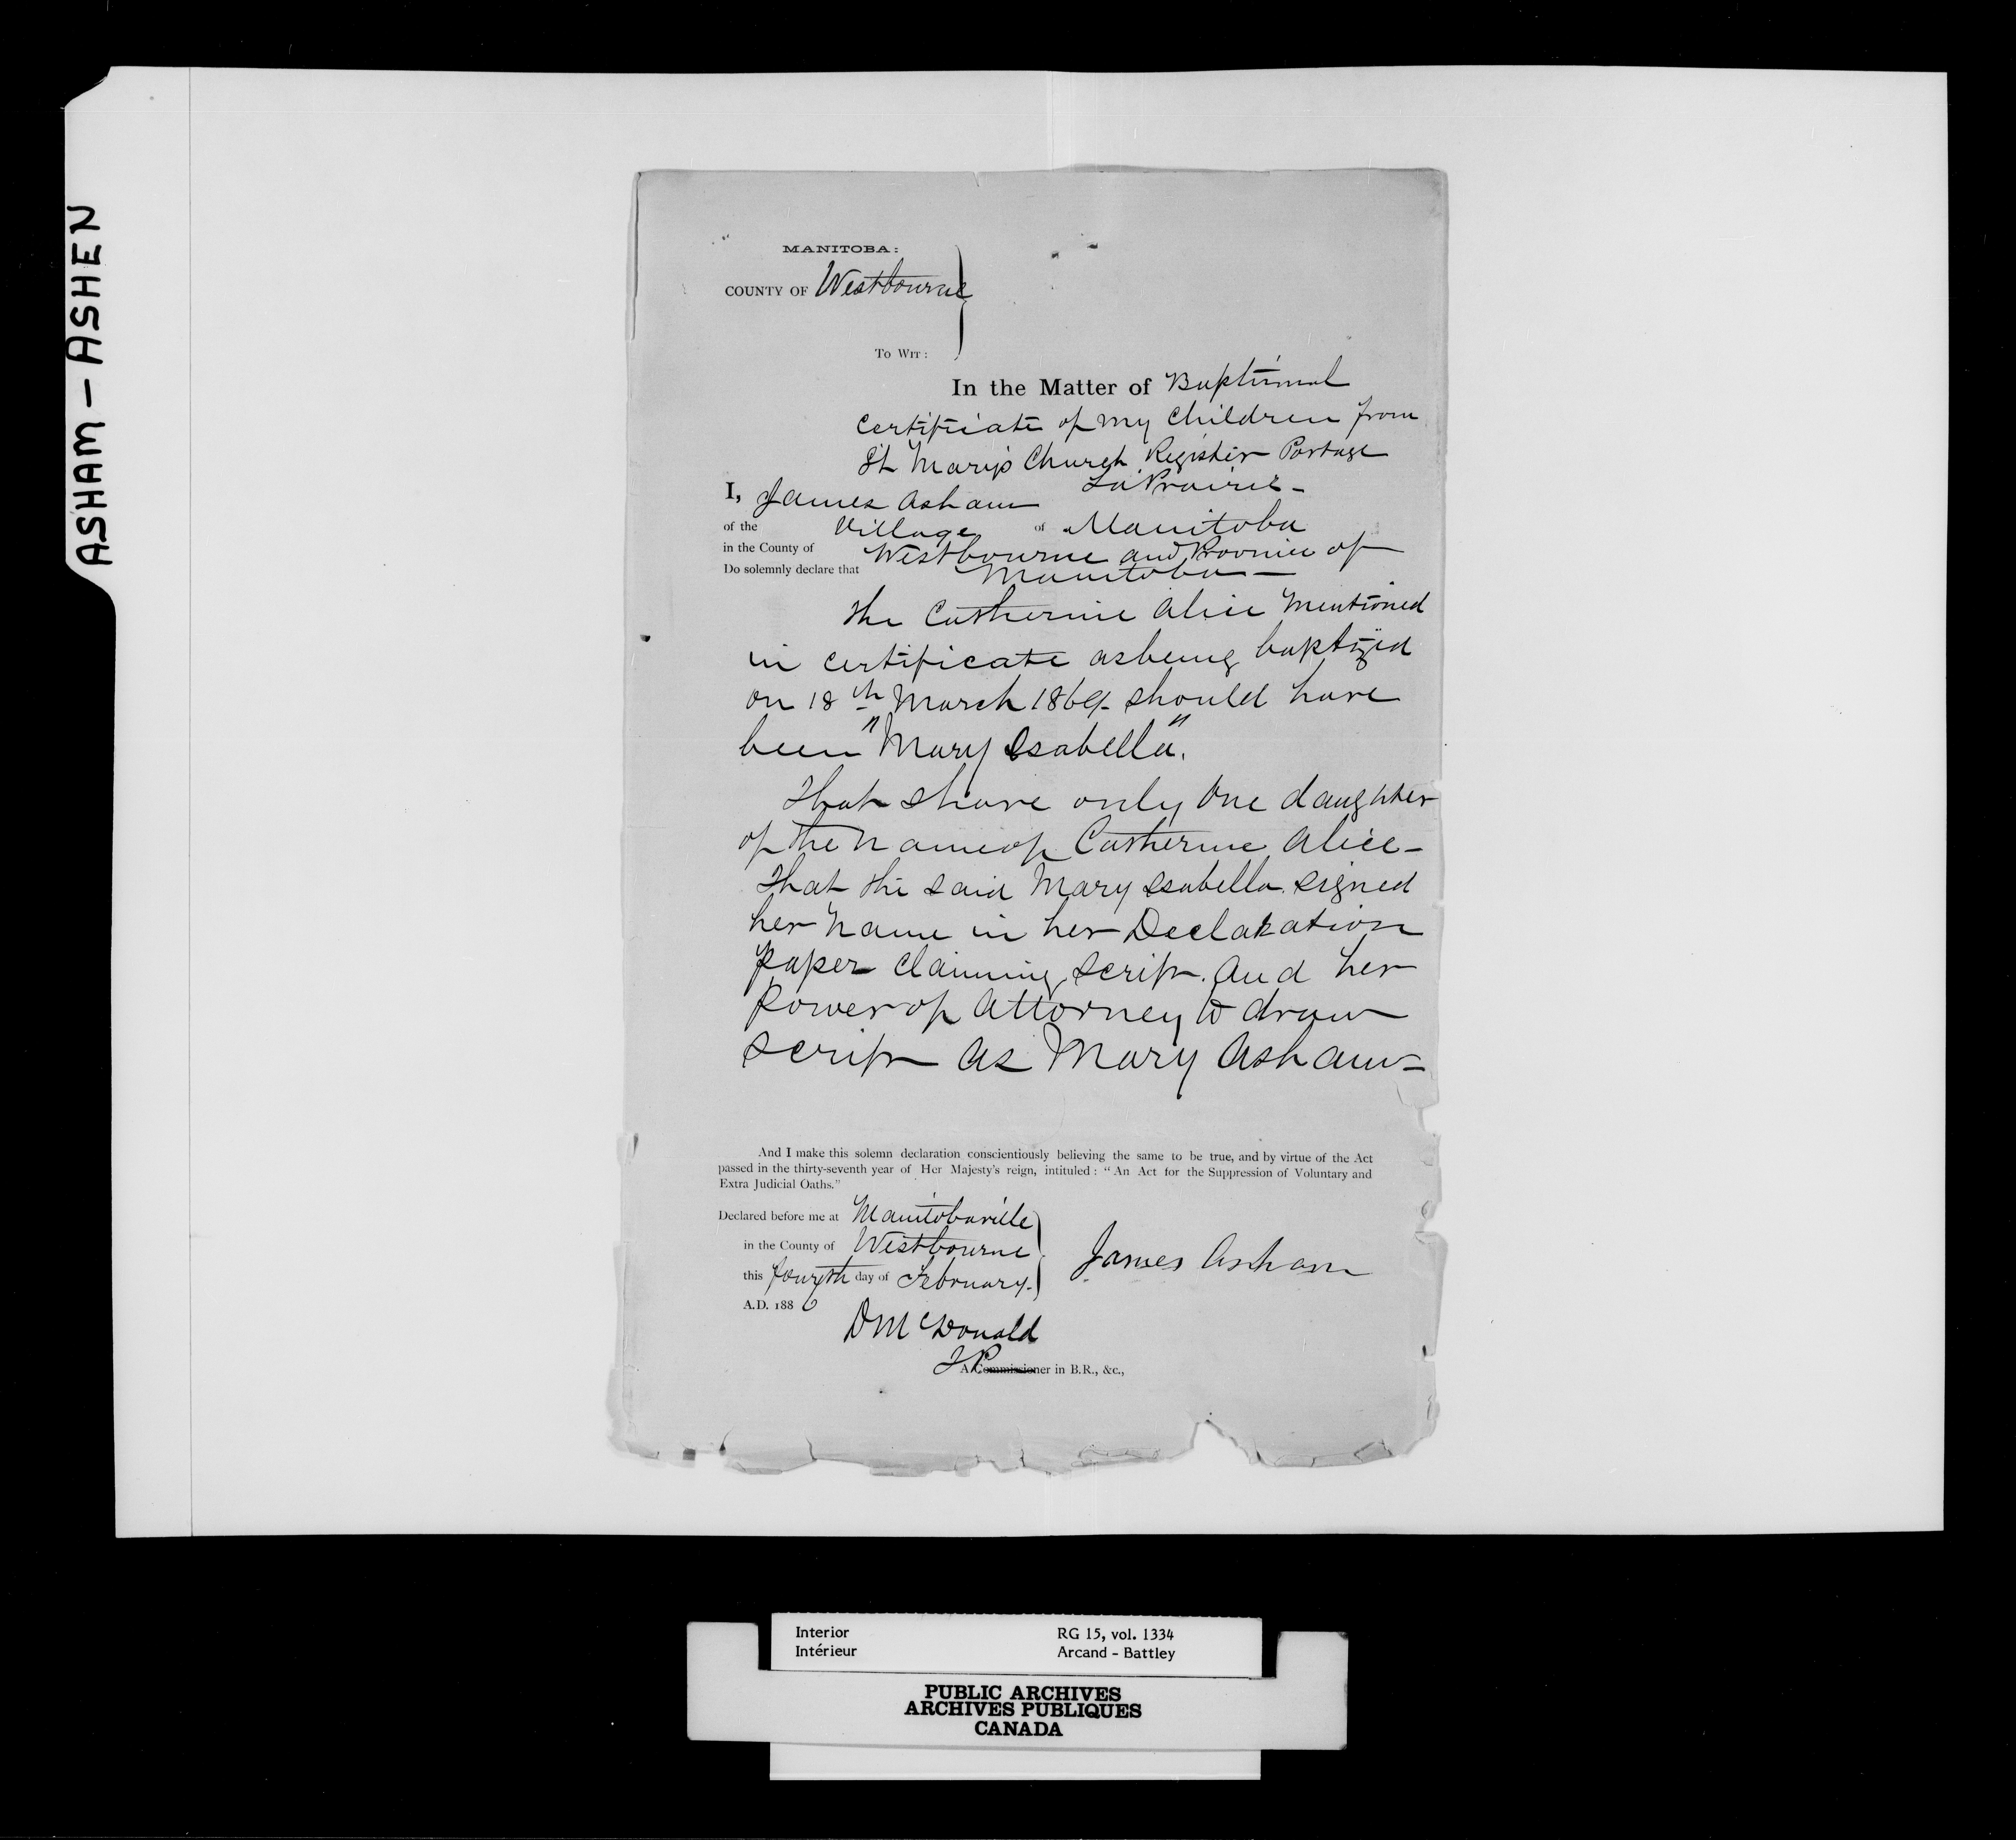 ASHAM - ASHEN
MANITOBA:
COUNTY OF Westbourne
TO WIT:
In the Matter of Baptismal
Certificate of my Children from
St Mary's Church Register Portage
La Prairie -
I, James Asham
of the Village of Manitoba
in the County of Westbourne and Province of
Do solemnly declare that Manitoba -
The Catherine Alice mentioned
in certificate as being baptized
on 18th March 1869 should have
been "Mary Isabella".
That I have only One daughter
of the name of Catherine Alice -
That the said Mary Isabella signed
her name in her Declaration
paper Claiming Scrip. And her
Power of Attorney to draw
Scrip as Mary Asham -
And I make this solemn declaration conscientiously believing the same to be true, and by virtue of the Act
passed in the thirty-seventh year of Her Majesty's reign, intituled: "An Act for the Suppression of Voluntary and
Extra Judicial Oaths."
Declared before me at Manitobaville
in the County of Westbourne
this fourth day of February.
A.D. 1886
James Asham
D McDonald
JP
A Commissioner in B.R., &c.,
Interior RG 15, vol. 1334
Intérieur Arcand - Battley
PUBLIC ARCHIVES
ARCHIVES PUBLIQUES
CANADA